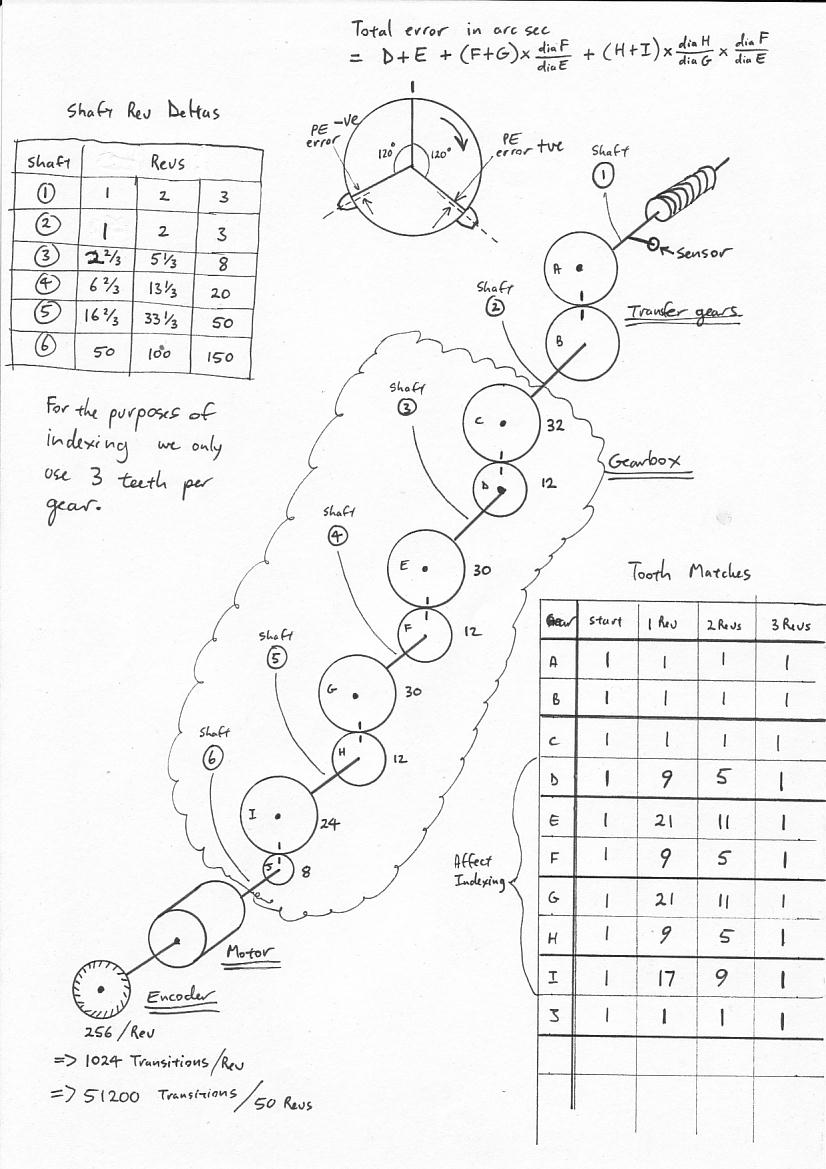 Total error in arc sec
= D+E + (F+G)× dia F/dia E + (H+I)× dia H/dia G × dia F/dia E
Shaft Rev Deltas
Shaft Revs
① 1 2 3
② 1 2 3
③ 2 2/3 5 1/3 8
④ 6 2/3 13 1/3 20
⑤ 16 2/3 33 1/3 50
⑥ 50 100 150
For the purposes of
indexing we only
use 3 teeth per
gear.
PE -ve
error
120° 120°
PE
error +ve
Shaft
①
Sensor
A
Transfer gears
B
Shaft
②
C 32
Gearbox
D 12
Shaft
③
E 30
F 12
Shaft
④
G 30
H 12
Shaft
⑤
I 24
J 8
Shaft
⑥
Motor
Encoder
256 /Rev
=> 1024 Transitions/Rev
=> 51200 Transitions/50 Revs
Tooth Matches
Gear Start 1 Rev 2 Revs 3 Revs
A 1 1 1 1
B 1 1 1 1
C 1 1 1 1
D 1 9 5 1
E 1 21 11 1
F 1 9 5 1
G 1 21 11 1
H 1 9 5 1
I 1 17 9 1
J 1 1 1 1
Affect
Indexing